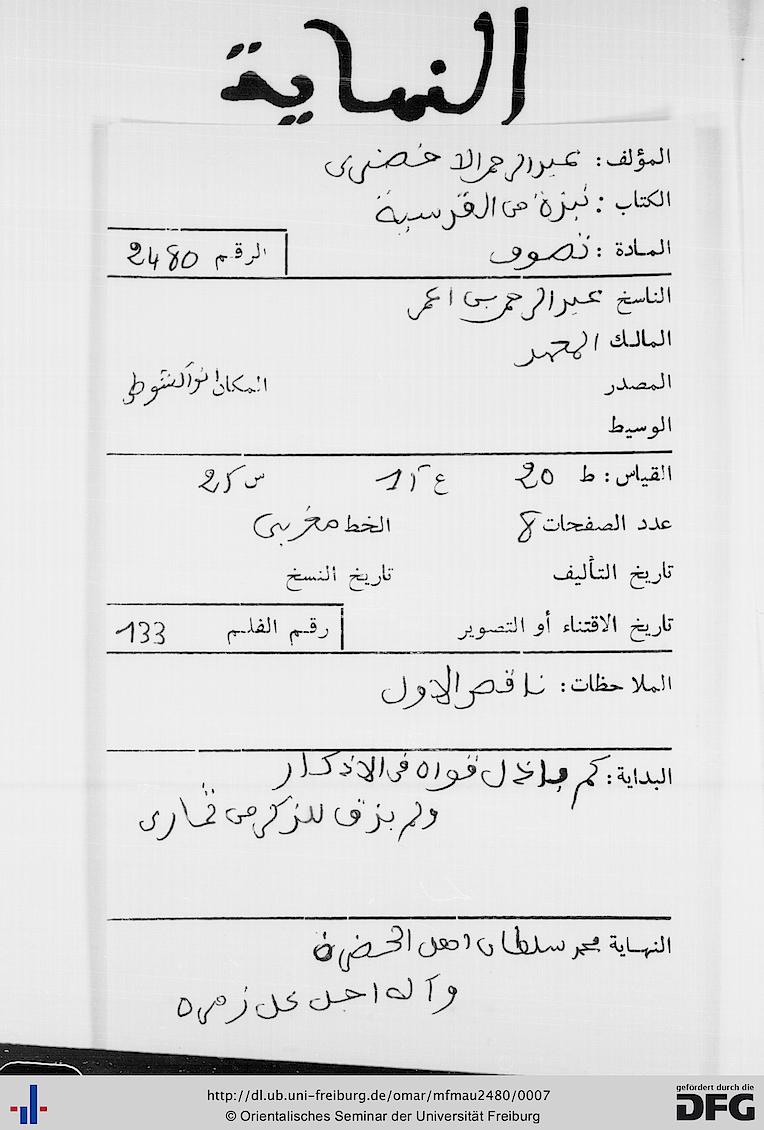 النهاية
المؤلف : عبد الرحمن الاخضري
الكتاب : نبذة من القدسية
المادة : تصوف
الرقم 2480
الناسخ عبد الرحمن بن اعمر
المالك المعهد
المصدر
المكان انواكشوط
الوسيط
القياس : ط 20 ع 15 س 25
عدد الصفحات 8 الخط مغربي
تاريخ التأليف تاريخ النسخ
تاريخ الاقتناء أو التصوير
رقم الفلم 133
الملاحظات : ناقص الاول
البداية : كم باذل قواه في الاذكار
ولم يذق للذكر من ثمار
النهاية محمد سلطان اهل الحضرة
وآله اجل كل زمره
http://dl.ub.uni-freiburg.de/omar/mfmau2480/0007
© Orientalisches Seminar der Universität Freiburg
gefördert durch die
DFG